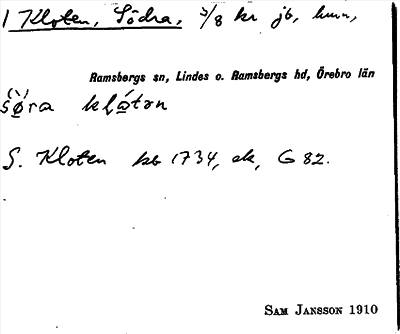 1 Kloten, Södra, 5/8 kr jb, hmn,
Ramsbergs sn, Lindes o. Ramsbergs hd, Örebro län
s̀ø̠ra klá̠tən
S. Kloten kb 1734, ek, G 82.
SAM JANSSON 1910